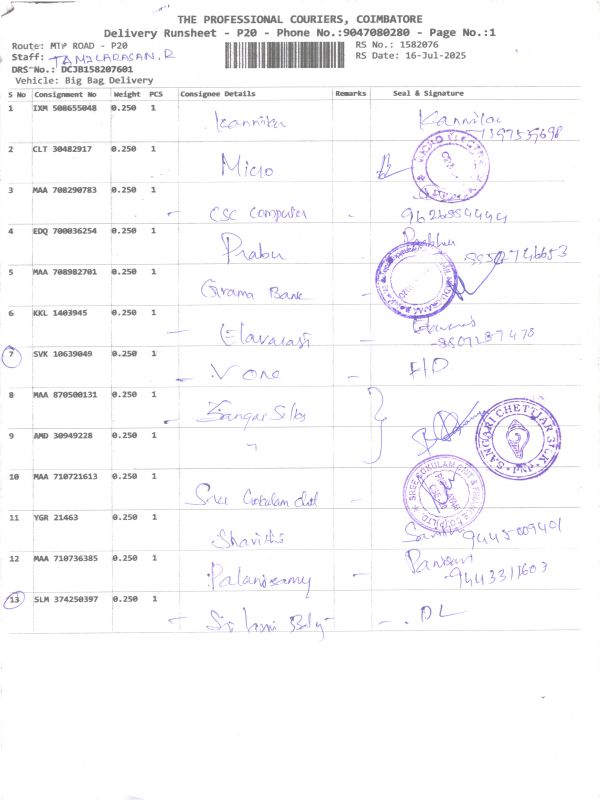 THE PROFESSIONAL COURIERS, COIMBATORE
Delivery Runsheet - P20 - Phone No.:9047080280 - Page No.:1
Route: MTP ROAD - P20
RS No.: 1582076
Staff: TAMILARASAN.R
RS Date: 16-Jul-2025
DRS No.: DCJB158207601
Vehicle: Big Bag Delivery
S No Consignment No Weight PCS Consignee Details Remarks Seal & Signature
1 IXM 508655048 0.250 1 Kannika
2 CLT 30482917 0.250 1 Micro
3 MAA 708290783 0.250 1 - CSC Computer - 9626954444
4 EDQ 700036254 0.250 1 Prabu
5 MAA 708982701 0.250 1 Grama Bank -
6 KKL 1403945 0.250 1 - Elavarasi - 8807287478
7 SVK 10639049 0.250 1 - V One - F/D
8 MAA 870500131 0.250 1 - Sangari Silks
9 AMD 30949228 0.250 1 "
SANGARI CHETTIAR SILK
10 MAA 710721613 0.250 1 Sree Gokulam chit
SREE GOKULAM CHIT & FINANCE CO (P) LTD.
11 YGR 21463 0.250 1 Sharidhi - 9445009401
12 MAA 710736385 0.250 1 Palanisamy - 9443311603
13 SLM 374250397 0.250 1 - Sri - DL